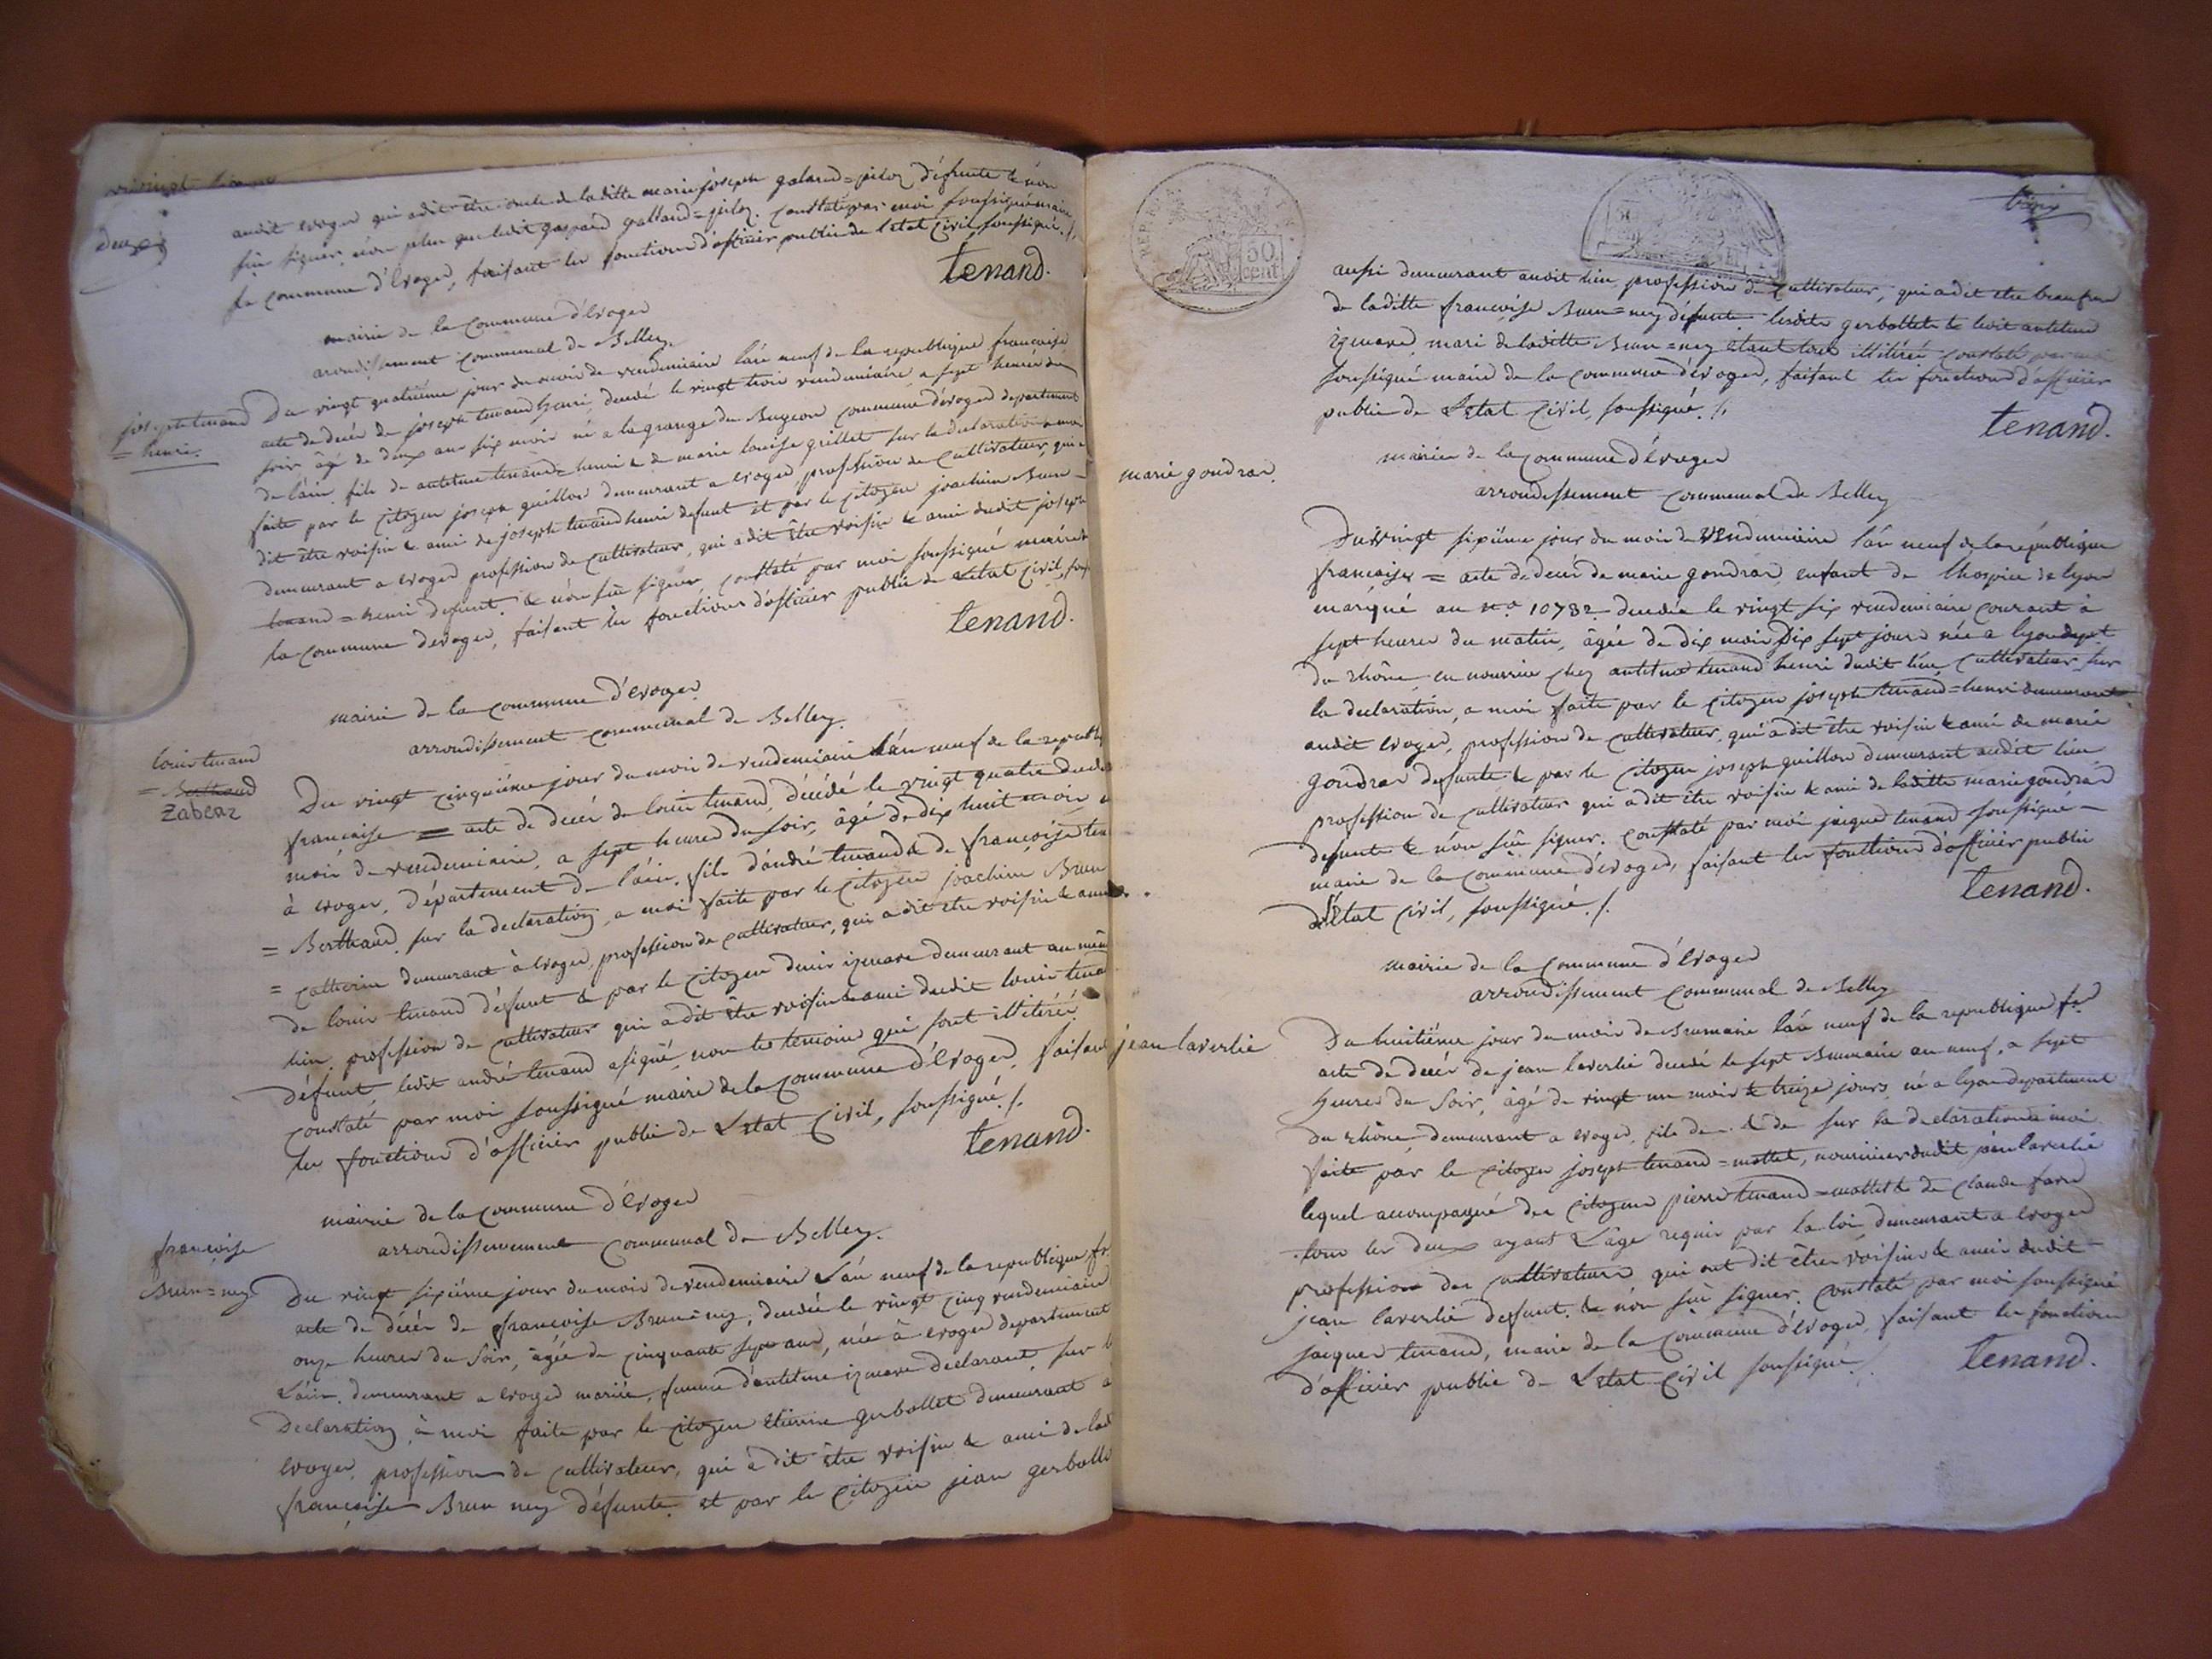 deux
audit evoges qui a dit être oncle de laditte marie josephe galand=piloz défunte & non
sçu signer non plus que ledit gaspard galland=piloz. constaté par moi soussigné maire
la commune d'Evoges, faisant les fonctions d'officier public de l'etat civil soussigné ./.
tenand.
mairie de la commune d'Evoges
arondissement communal de Belley.
joseph tenand
= henri.
Du vingt quatrième jour du mois de vendemiaire l'an neuf de la republique française
acte de decès de joseph tenand henri, decedé le vingt trois vendemiaire a sept heures du
soir âgé de deux ans six mois né a la grange du Bugeon commune d'evoges departement
de l'ain, fils de antelme tenand=henri & de marie louise grillet sur la declaration a moi
faite par le citoyen joseph guillon demeurant a evoges, profession de cultivateur, qui a
dit être voisin & ami de joseph tenand henri defunt et par le citoyen joachim Brun-
demeurant a evoges profession de cultivateur, qui a dit être voisin & ami dudit joseph
tenand=henri defunt. & non sçu signer constaté par moi soussigné maire de
la commune d'evoges, faisant les fonctions d'officier public de l'etat civil, sous
tenand.
mairie de la commune d'Evoges
arrondissement communal de Belley.
louis tenand
= Berthaud
Zabeaz
Du vingt cinquième jour du mois de vendemiaire l'an neuf de la republi
française = acte de decès de louis tenand, décédé le vingt quatre dudi
mois de vendemiaire, a sept heures du soir, âgé de dix huit mois
à evoges, département de l'ain, fils d'andré tenand & de françoise ten
= Berthaud, sur la declaration, a moi faite par le citoyen joachim Brun
= catherin demeurant à evoges, profession de cultivateur, qui a dit etre voisin & ami
de louis tenand défunt & par le citoyen denis izenare demeurant au mêm
lieu, profession de cultivateur qui a dit être voisin & ami dudit louis tena
défunt, ledit andré tenand a signé, non les temoins qui sont illiterés
constaté par moi soussigné maire de la commune d'Evoges, faisant
les fonctions d'officier public de l'etat civil, soussigné ./.
tenand.
mairie de la commune d'Evoges
arrondissement communal de Belley.
françoise
Brun=ney
Du vingt sixième jour du mois de vendemiaire l'an neuf de la republique fr.
acte de décès de françoise Brun=ney, decedée le vingt cinq vendemiaire
onze heures du soir, âgée de cinquante sept ans, née à evoges departement
l'ain, demeurant a evoges mariée, femme d'antelme izenare declarant, sur l
Declaration, à moi faite par le citoyen Etienne gerbollet demeurant a
evoges, profession de cultivateur, qui à dit être voisin & ami de lad
françoise Brun ney défunte. et par le citoyen jean gerbolle
REP
50
cent
trois
aussi demeurant audit lieu, profession de cultivateur, qui a dit etre beau frere
de laditte françoise Brun=ney défunte. lesdits gerbollets & ledit antelme
izenare, mari de laditte Brun=ney etant tous illiterés constaté par moi
soussigné maire de la commune d'evoges, faisant les fonctions d'officier
public de l'etat civil, soussigné ./.
tenand.
mairie de la commune d'Evoges
arrondissement communal de Belley
marie gondrar.
Du vingt sixième jour du mois de vendemiaire l'an neuf de la république
française = acte de decès de marie gondrar enfant de l'hospice de lyon
marqué au n.o 10782 decedée le vingt six vendemiaire courant à
sept heures du matin, âgée de dix mois dix sept jours née a lyon dept
du rhône en nourrice chez antelme tenand henri dudit lieu cultivateur sur
la declaration, a moi faite par le citoyen joseph tenand=henri demeurant
audit evoges, profession de cultivateur, qui a dit être voisin & ami de marie
gondrar defunte & par le citoyen joseph guillon demeurant audit lieu
profession de cultivateur qui a dit être voisin & ami de laditte marie gondrar
defunte & non sçu signer. constaté par moi jacques tenand soussigné -
maire de la commune d'évoges, faisant les fonctions d'officier public
de l'Etat civil, soussigné ./.
tenand.
mairie de la commune d'Evoges
arrondissement communal de Belley
jean laverlie
Du huitième jour du mois de Brumaire l'an neuf de la republique fr.
acte de decès de jean laverlie decedé le sept Brumaire an neuf, a sept
heures du soir, âgé de vingt un mois & treize jours né a lyon departement
du rhône demeurant a evoges, fils de & de sur la declaration a moi
faite par le citoyen joseph tenand=mollet, nourricier dudit jean laverlie
lequel accompagné des citoyens pierre tenand=mollet & de claude favre
tous les deux ayant l'âge requis par la loi demeurant a evoges
profession des cultivateurs qui ont dit être voisins & amis dudit
jean laverlie defunt. & non sçu signer. constaté par moi soussigné
jacques tenand, maire de la commune d'Evoges, faisant les fonctions
d'officier public de l'etat civil soussigné ./.
tenand.